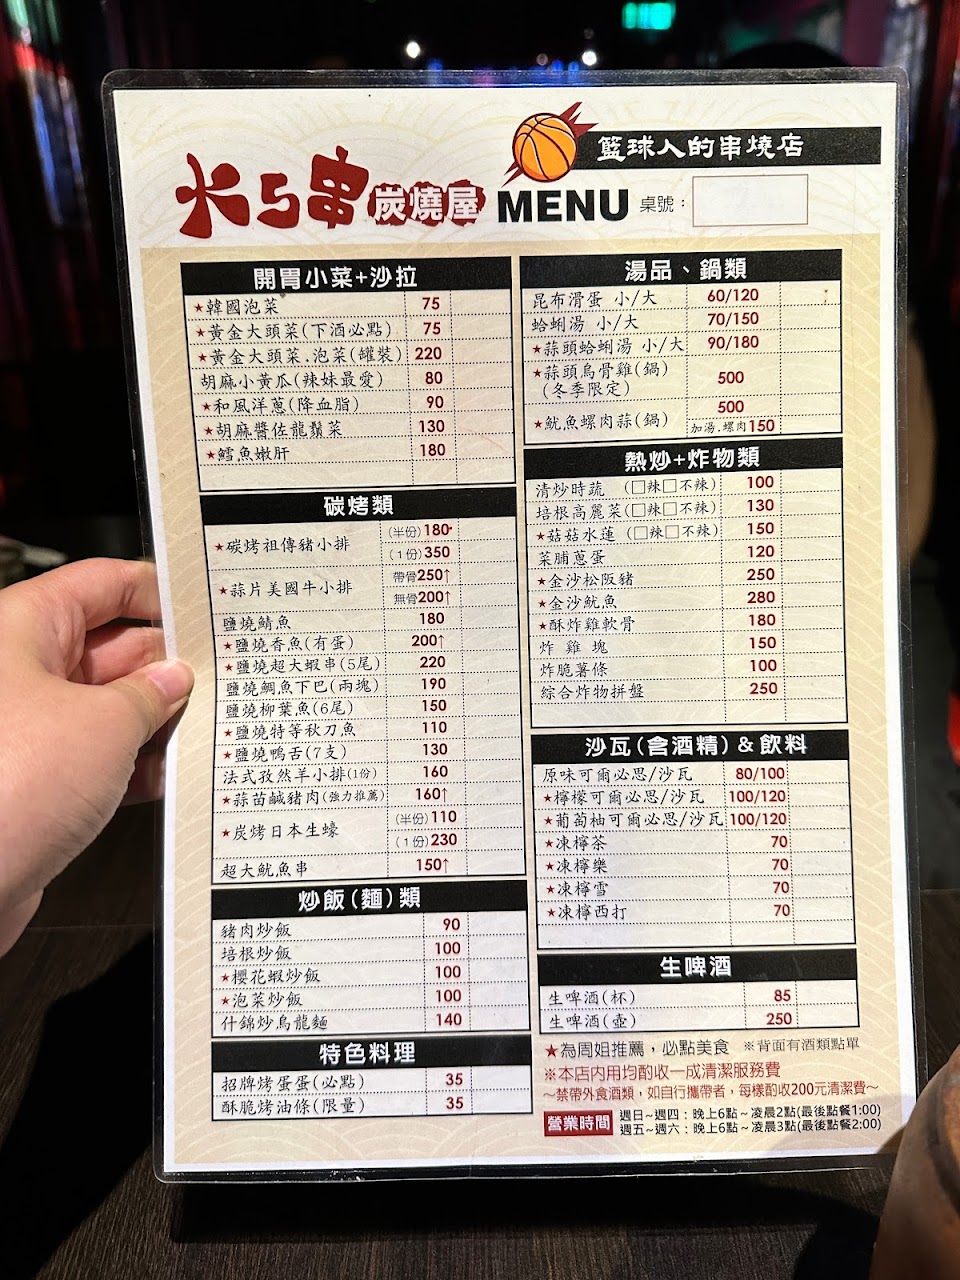 籃球人的串燒店
火5串炭燒屋 MENU 桌號：
開胃小菜+沙拉
★韓國泡菜 75
★黃金大頭菜(下酒必點) 75
★黃金大頭菜.泡菜(罐裝) 220
胡麻小黃瓜(辣妹最愛) 80
★和風洋蔥(降血脂) 90
★胡麻醬佐龍鬚菜 130
★鱈魚嫩肝 180
碳烤類
★碳烤祖傳豬小排 (半份)180
(1份)350
★蒜片美國牛小排 帶骨250↑
無骨200↑
鹽燒鯖魚 180
★鹽燒香魚(有蛋) 200↑
★鹽燒超大蝦串(5尾) 220
鹽燒鯛魚下巴(兩塊) 190
鹽燒柳葉魚(6尾) 150
★鹽燒特等秋刀魚 110
★鹽燒鴨舌(7支) 130
法式孜然羊小排(1份) 160
★蒜苗鹹豬肉(強力推薦) 160↑
★炭烤日本生蠔 (半份)110
(1份)230
超大魷魚串 150↑
炒飯(麵)類
豬肉炒飯 90
培根炒飯 100
★櫻花蝦炒飯 100
★泡菜炒飯 100
什錦炒烏龍麵 140
特色料理
招牌烤蛋蛋(必點) 35
酥脆烤油條(限量) 35
湯品、鍋類
昆布滑蛋 小/大 60/120
蛤蜊湯 小/大 70/150
★蒜頭蛤蜊湯 小/大 90/180
★蒜頭烏骨雞(鍋) 500
(冬季限定)
★魷魚螺肉蒜(鍋) 500
加湯.螺肉150
熱炒+炸物類
清炒時蔬 (□辣□不辣) 100
培根高麗菜(□辣□不辣) 130
★菇菇水蓮 (□辣□不辣) 150
菜脯蔥蛋 120
★金沙松阪豬 250
★金沙魷魚 280
★酥炸雞軟骨 180
炸 雞 塊 150
炸脆薯條 100
綜合炸物拼盤 250
沙瓦(含酒精)&飲料
原味可爾必思/沙瓦 80/100
★檸檬可爾必思/沙瓦 100/120
★葡萄柚可爾必思/沙瓦 100/120
★凍檸茶 70
★凍檸樂 70
★凍檸雪 70
★凍檸西打 70
生啤酒
生啤酒(杯) 85
生啤酒(壺) 250
★為周姐推薦，必點美食 ※背面有酒類點單
※本店內用均酌收一成清潔服務費
～禁帶外食酒類，如自行攜帶者，每樣酌收200元清潔費～
營業時間 週日~週四：晚上6點～凌晨2點(最後點餐1:00)
週五~週六：晚上6點～凌晨3點(最後點餐2:00)